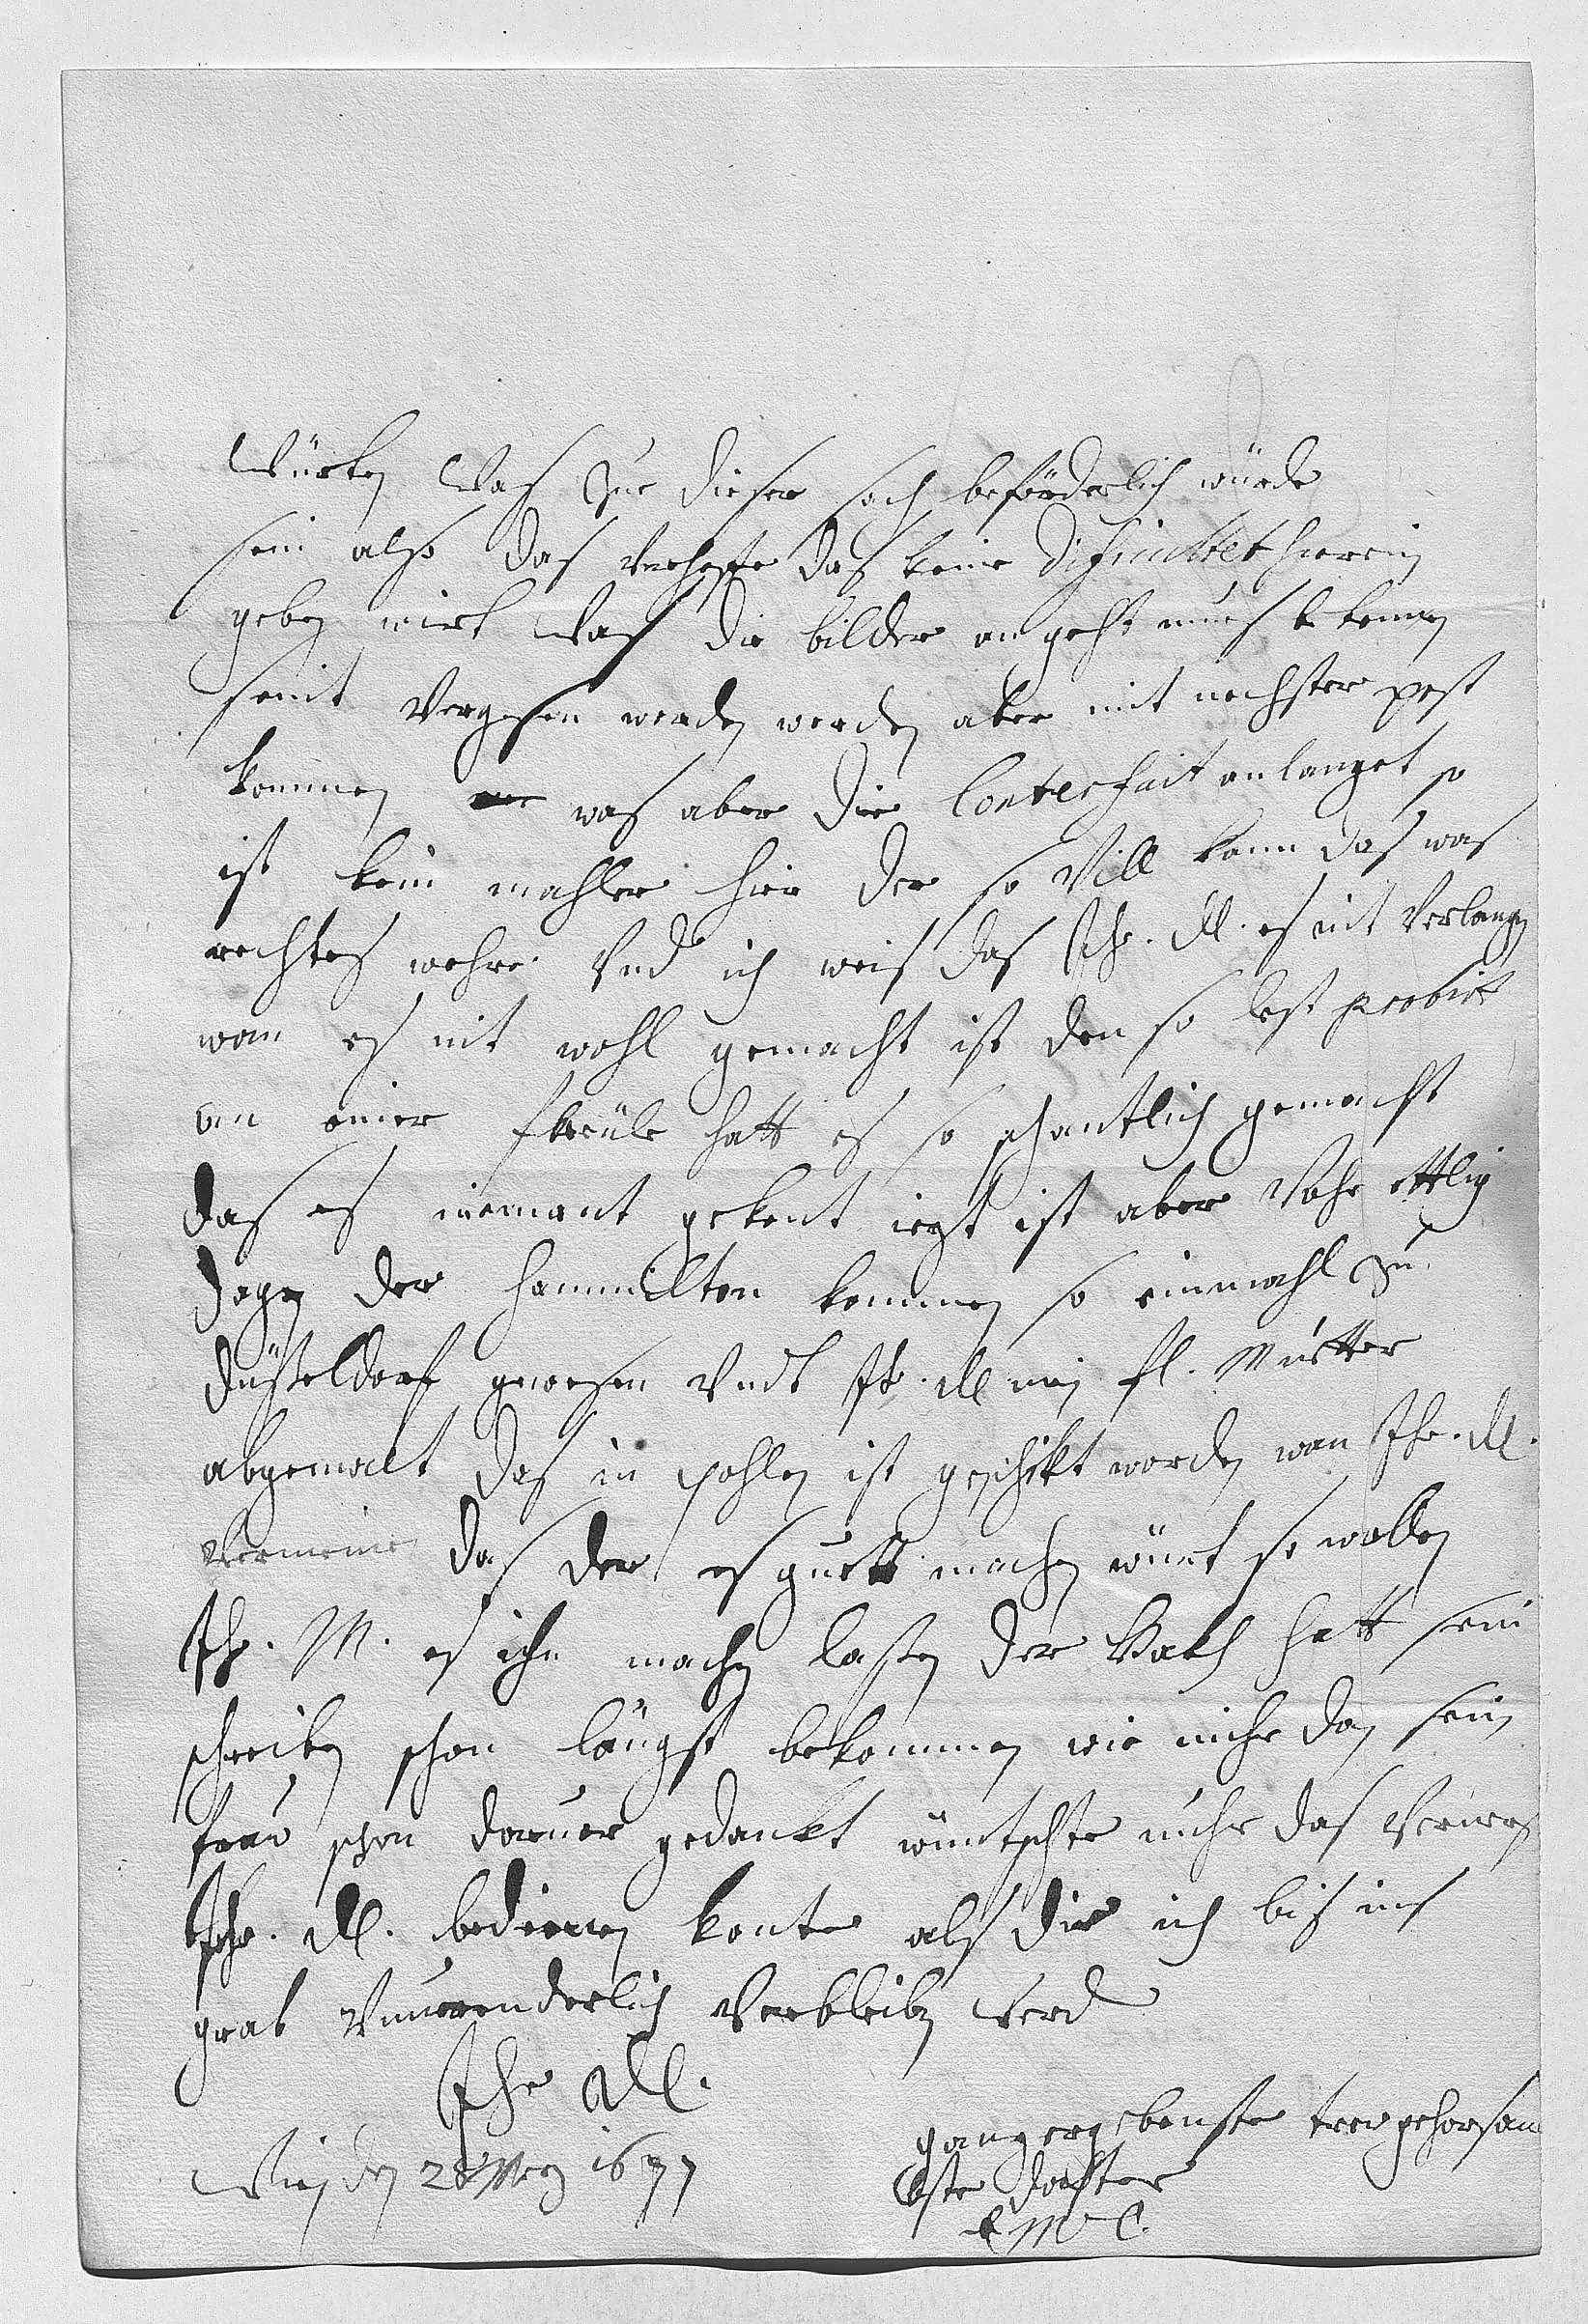 würken was zue dieser sach beförderlich würde
sein also das verhoffe das keine dificultet hierein
geben wirt was die bilder an geht mues bekennen
seint vergessen worden werden aber mit nechster post
kommen was aber die Conterfait anlanget so
ist kein mahler hier der so vill kann das was
rechtes wehre vnd ich weis das Ihr. M. es nit verlangen
wan es nit wohl gemacht ist den so lest probirt
an einer freüle hatt es so schantlich gemacht
das es niemant gekent iezt ist aber vohr ettlig
dagen der hammilton kommen so einmahl zu
düsseldorf gewesen vndt Ihr. M mein fl. Mutter
abgemalt das in pohlen ist geschikt worden wan Ihr. M.
vermeine das der es guett machen würt so wollen
Ihr. M. es ihn machen lassen der hatt sein
schreiben schon längst bekommen wie mihr dan sein
frau schon darüer gedankt wüntschte mihr das
Ihr. M. bedienen konte als die ich bis ins
grab vnverenderlich verbleiben werd
Ihr M.
Wien den 28 Merz 1677
ganz ergebenste treu gehorsam
bste dochter
E M T.